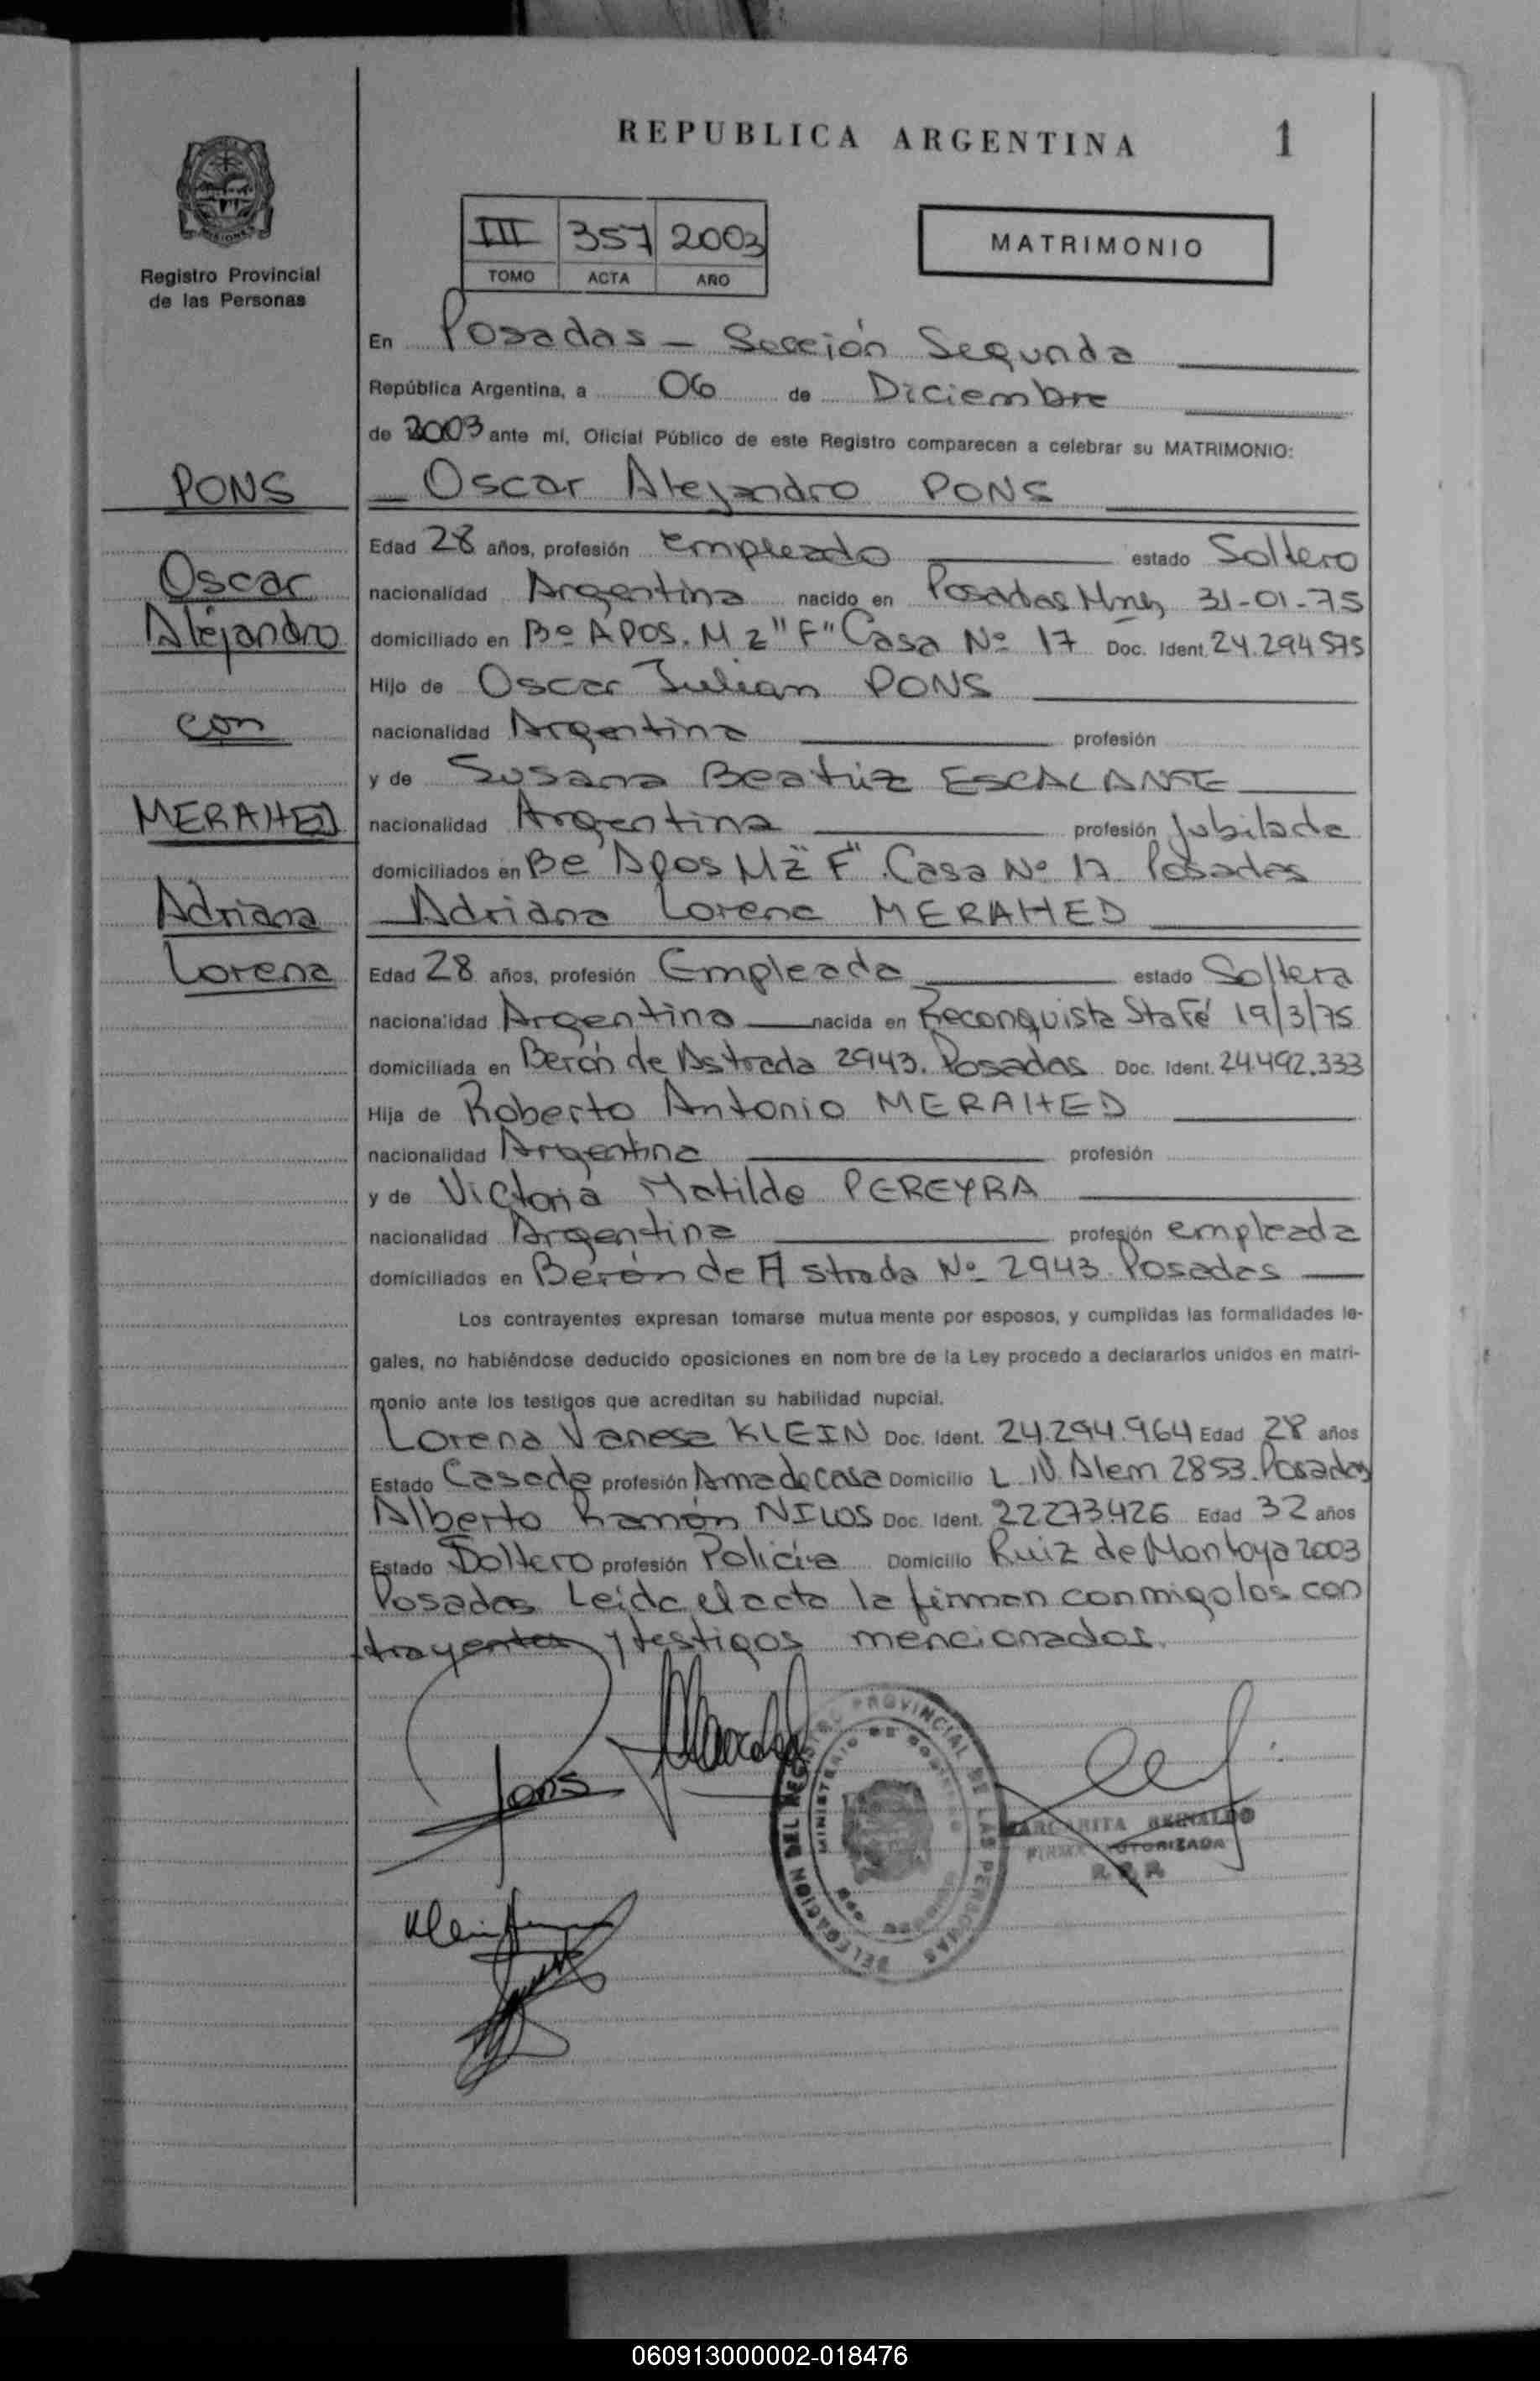 REPUBLICA ARGENTINA
1
Registro Provincial
de las Personas
III 357 2003
TOMO ACTA AÑO
MATRIMONIO
En Posadas - Sección Segunda
República Argentina, a 06 de Diciembre
de 2003 ante mí, Oficial Público de este Registro comparecen a celebrar su MATRIMONIO:
PONS
Oscar
Alejandro
con
MERAHED
Adriana
Lorena
Oscar Alejandro PONS
Edad 28 años, profesión empleado estado Soltero
nacionalidad Argentina nacido en Posadas Mnes 31-01-75
domiciliado en Bº APOS. Mz "F" Casa Nº 17 Doc. Ident. 24.294575
Hijo de Oscar Julian PONS
nacionalidad Argentina profesión
y de Susana Beatriz ESCALANTE
nacionalidad Argentina profesión Jubilada
domiciliados en Bº Apos Mz "F" Casa Nº 17 Posadas
Adriana Lorena MERAHED
Edad 28 años, profesión Empleada estado Soltera
nacionalidad Argentina nacida en Reconquista Sta Fé 19/3/75
domiciliada en Berón de Astrada 2943. Posadas Doc. Ident. 24.492.333
Hija de Roberto Antonio MERAHED
nacionalidad Argentina profesión
y de Victoria Matilde PEREYRA
nacionalidad Argentina profesión empleada
domiciliados en Berón de Astrada Nº 2943 Posadas
Los contrayentes expresan tomarse mutua mente por esposos, y cumplidas las formalidades le-
gales, no habiéndose deducido oposiciones en nom bre de la Ley procedo a declararlos unidos en matri-
monio ante los testigos que acreditan su habilidad nupcial.
Lorena Vanesa KLEIN Doc. Ident. 24.294.964 Edad 28 años
Estado Casada profesión Ama de casa Domicilio L N Alem 2853. Posadas
Alberto Ramón NILOS Doc. Ident. 22273426 Edad 32 años
Estado Soltero profesión Policía Domicilio Ruiz de Montoya 2003
Posadas Leida el acta la firman conmigo los con
trayentes y testigos mencionados.
Pons
DELEGACION DEL REGISTRO PROVINCIAL DE LAS PERSONAS
MINISTERIO DE GOBIERNO
MARGARITA REINALDO
FIRMA AUTORIZADA
R. P. P.
Klein
060913000002-018476